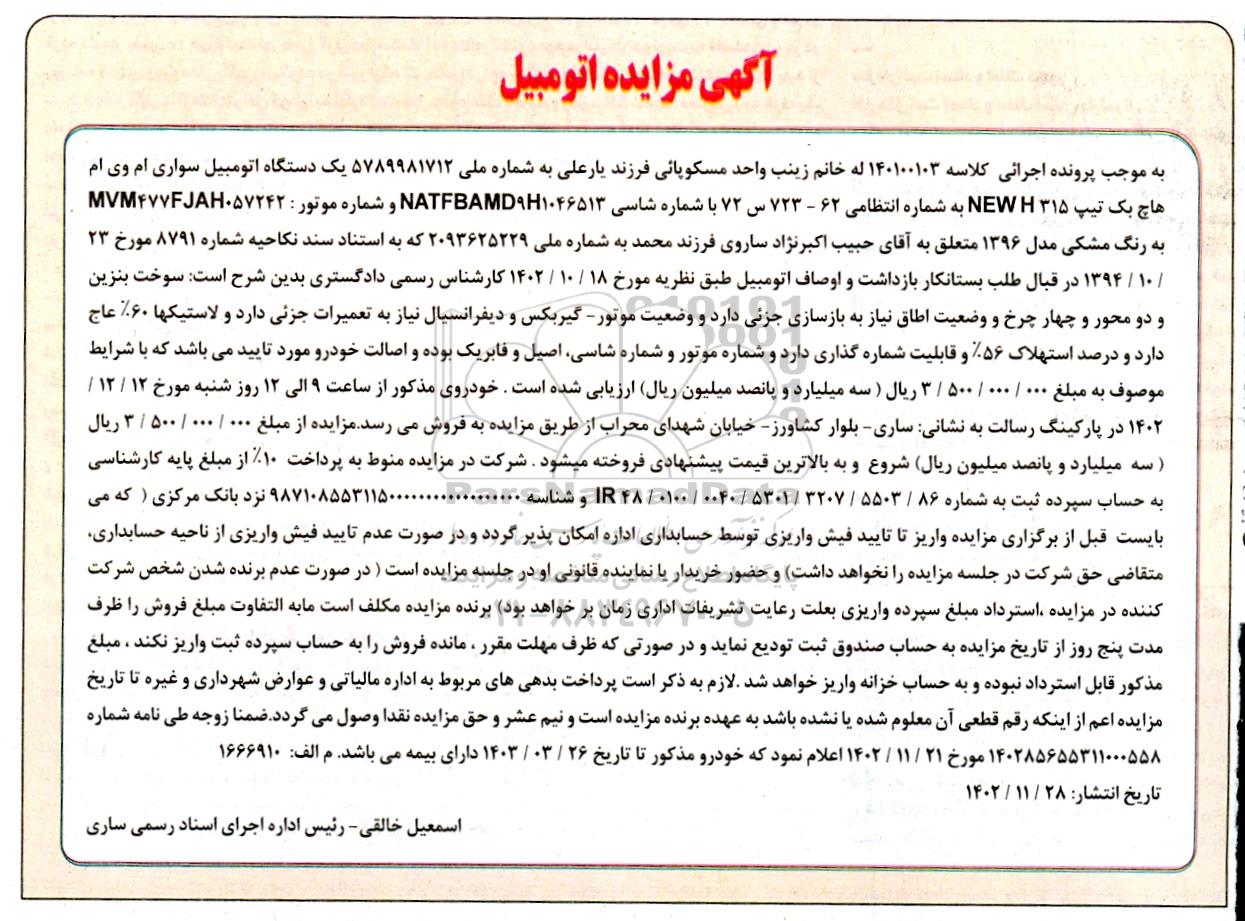 آگهی مزایده اتومبیل
به موجب پرونده اجرائی کلاسه ۱۴۰۱۰۰۱۰۳ له خانم زینب واحد مسکوپائی فرزند یارعلی به شماره ملی ۵۷۸۹۹۸۱۷۱۲ یک دستگاه اتومبیل سواری ام وی ام
هاچ بک تیپ NEW H ۳۱۵ به شماره انتظامی ۶۲ - ۷۲۳ س ۷۲ با شماره شاسی NATFBAMD۹H۱۰۴۶۵۱۳ و شماره موتور : MVM۴۷۷FJAH۰۵۷۲۴۲
به رنگ مشکی مدل ۱۳۹۶ متعلق به آقای حبیب اکبرنژاد ساروی فرزند محمد به شماره ملی ۲۰۹۳۶۲۵۲۲۹ که به استناد سند نکاحیه شماره ۸۷۹۱ مورخ ۲۳
/ ۱۰ / ۱۳۹۴ در قبال طلب بستانکار بازداشت و اوصاف اتومبیل طبق نظریه مورخ ۱۸ / ۱۰ / ۱۴۰۲ کارشناس رسمی دادگستری بدین شرح است: سوخت بنزین
و دو محور و چهار چرخ و وضعیت اطاق نیاز به بازسازی جزئی دارد و وضعیت موتور- گیربکس و دیفرانسیال نیاز به تعمیرات جزئی دارد و لاستیکها ۶۰٪ عاج
دارد و درصد استهلاک ۵۶٪ و قابلیت شماره گذاری دارد و شماره موتور و شماره شاسی، اصیل و فابریک بوده و اصالت خودرو مورد تایید می باشد که با شرایط
موصوف به مبلغ ۰۰۰ / ۰۰۰ / ۵۰۰ / ۳ ریال ( سه میلیارد و پانصد میلیون ریال) ارزیابی شده است . خودروی مذکور از ساعت ۹ الی ۱۲ روز شنبه مورخ ۱۲ / ۱۲ /
۱۴۰۲ در پارکینگ رسالت به نشانی: ساری- بلوار کشاورز- خیابان شهدای محراب از طریق مزایده به فروش می رسد.مزایده از مبلغ ۰۰۰ / ۰۰۰ / ۵۰۰ / ۳ ریال
( سه میلیارد و پانصد میلیون ریال) شروع و به بالاترین قیمت پیشنهادی فروخته میشود . شرکت در مزایده منوط به پرداخت ۱۰٪ از مبلغ پایه کارشناسی
به حساب سپرده ثبت به شماره ۸۶ / ۵۵۰۳ / ۳۲۰۷ / ۵۳۰۱ / ۰۰۴۰ / ۰۱۰۰ / IR ۴۸ و شناسه نزد بانک مرکزی ( که می
بایست قبل از برگزاری مزایده واریز تا تایید فیش واریزی توسط حسابداری اداره امکان پذیر گردد و در صورت عدم تایید فیش واریزی از ناحیه حسابداری،
متقاضی حق شرکت در جلسه مزایده را نخواهد داشت) و حضور خریدار یا نماینده قانونی او در جلسه مزایده است ( در صورت عدم برنده شدن شخص شرکت
کننده در مزایده ،استرداد مبلغ سپرده واریزی بعلت رعایت تشریفات اداری زمان بر خواهد بود) برنده مزایده مکلف است مابه التفاوت مبلغ فروش را ظرف
مدت پنج روز از تاریخ مزایده به حساب صندوق ثبت تودیع نماید و در صورتی که ظرف مهلت مقرر ، مانده فروش را به حساب سپرده ثبت واریز نکند ، مبلغ
مذکور قابل استرداد نبوده و به حساب خزانه واریز خواهد شد .لازم به ذکر است پرداخت بدهی های مربوط به اداره مالیاتی و عوارض شهرداری و غیره تا تاریخ
مزایده اعم از اینکه رقم قطعی آن معلوم شده یا نشده باشد به عهده برنده مزایده است و نیم عشر و حق مزایده نقدا وصول می گردد.ضمنا زوجه طی نامه شماره
۱۴۰۲۸۵۶۵۵۳۱۱۰۰۰۵۵۸ مورخ ۲۱ / ۱۱ / ۱۴۰۲ اعلام نمود که خودرو مذکور تا تاریخ ۲۶ / ۰۳ / ۱۴۰۳ دارای بیمه می باشد. م الف: ۱۶۶۶۹۱۰
تاریخ انتشار: ۲۸ / ۱۱ / ۱۴۰۲
اسمعیل خالقی- رئیس اداره اجرای اسناد رسمی ساری
ParsNamadData